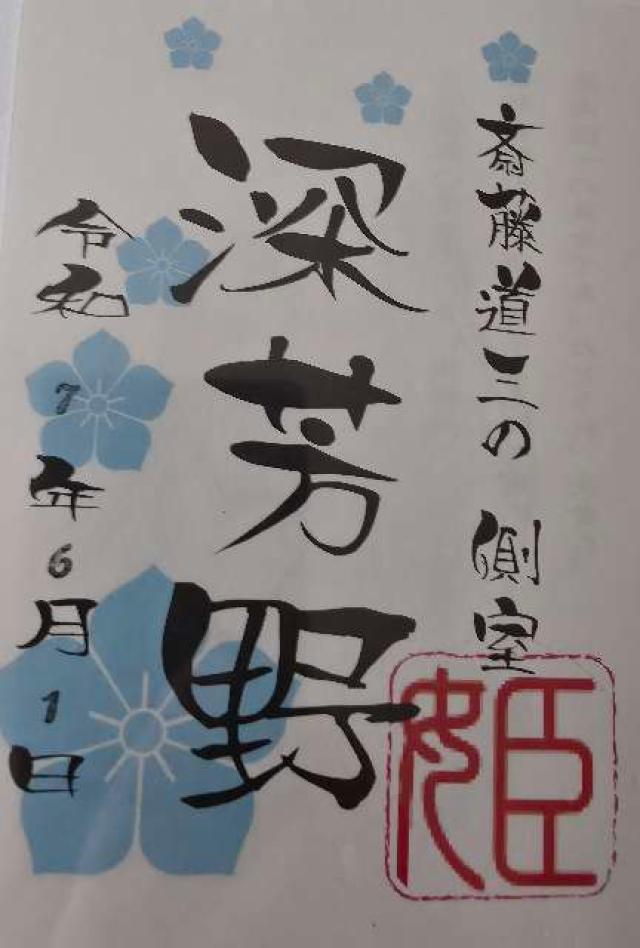 斎藤道三の 側室
深芳野
令和7年6月1日
姫